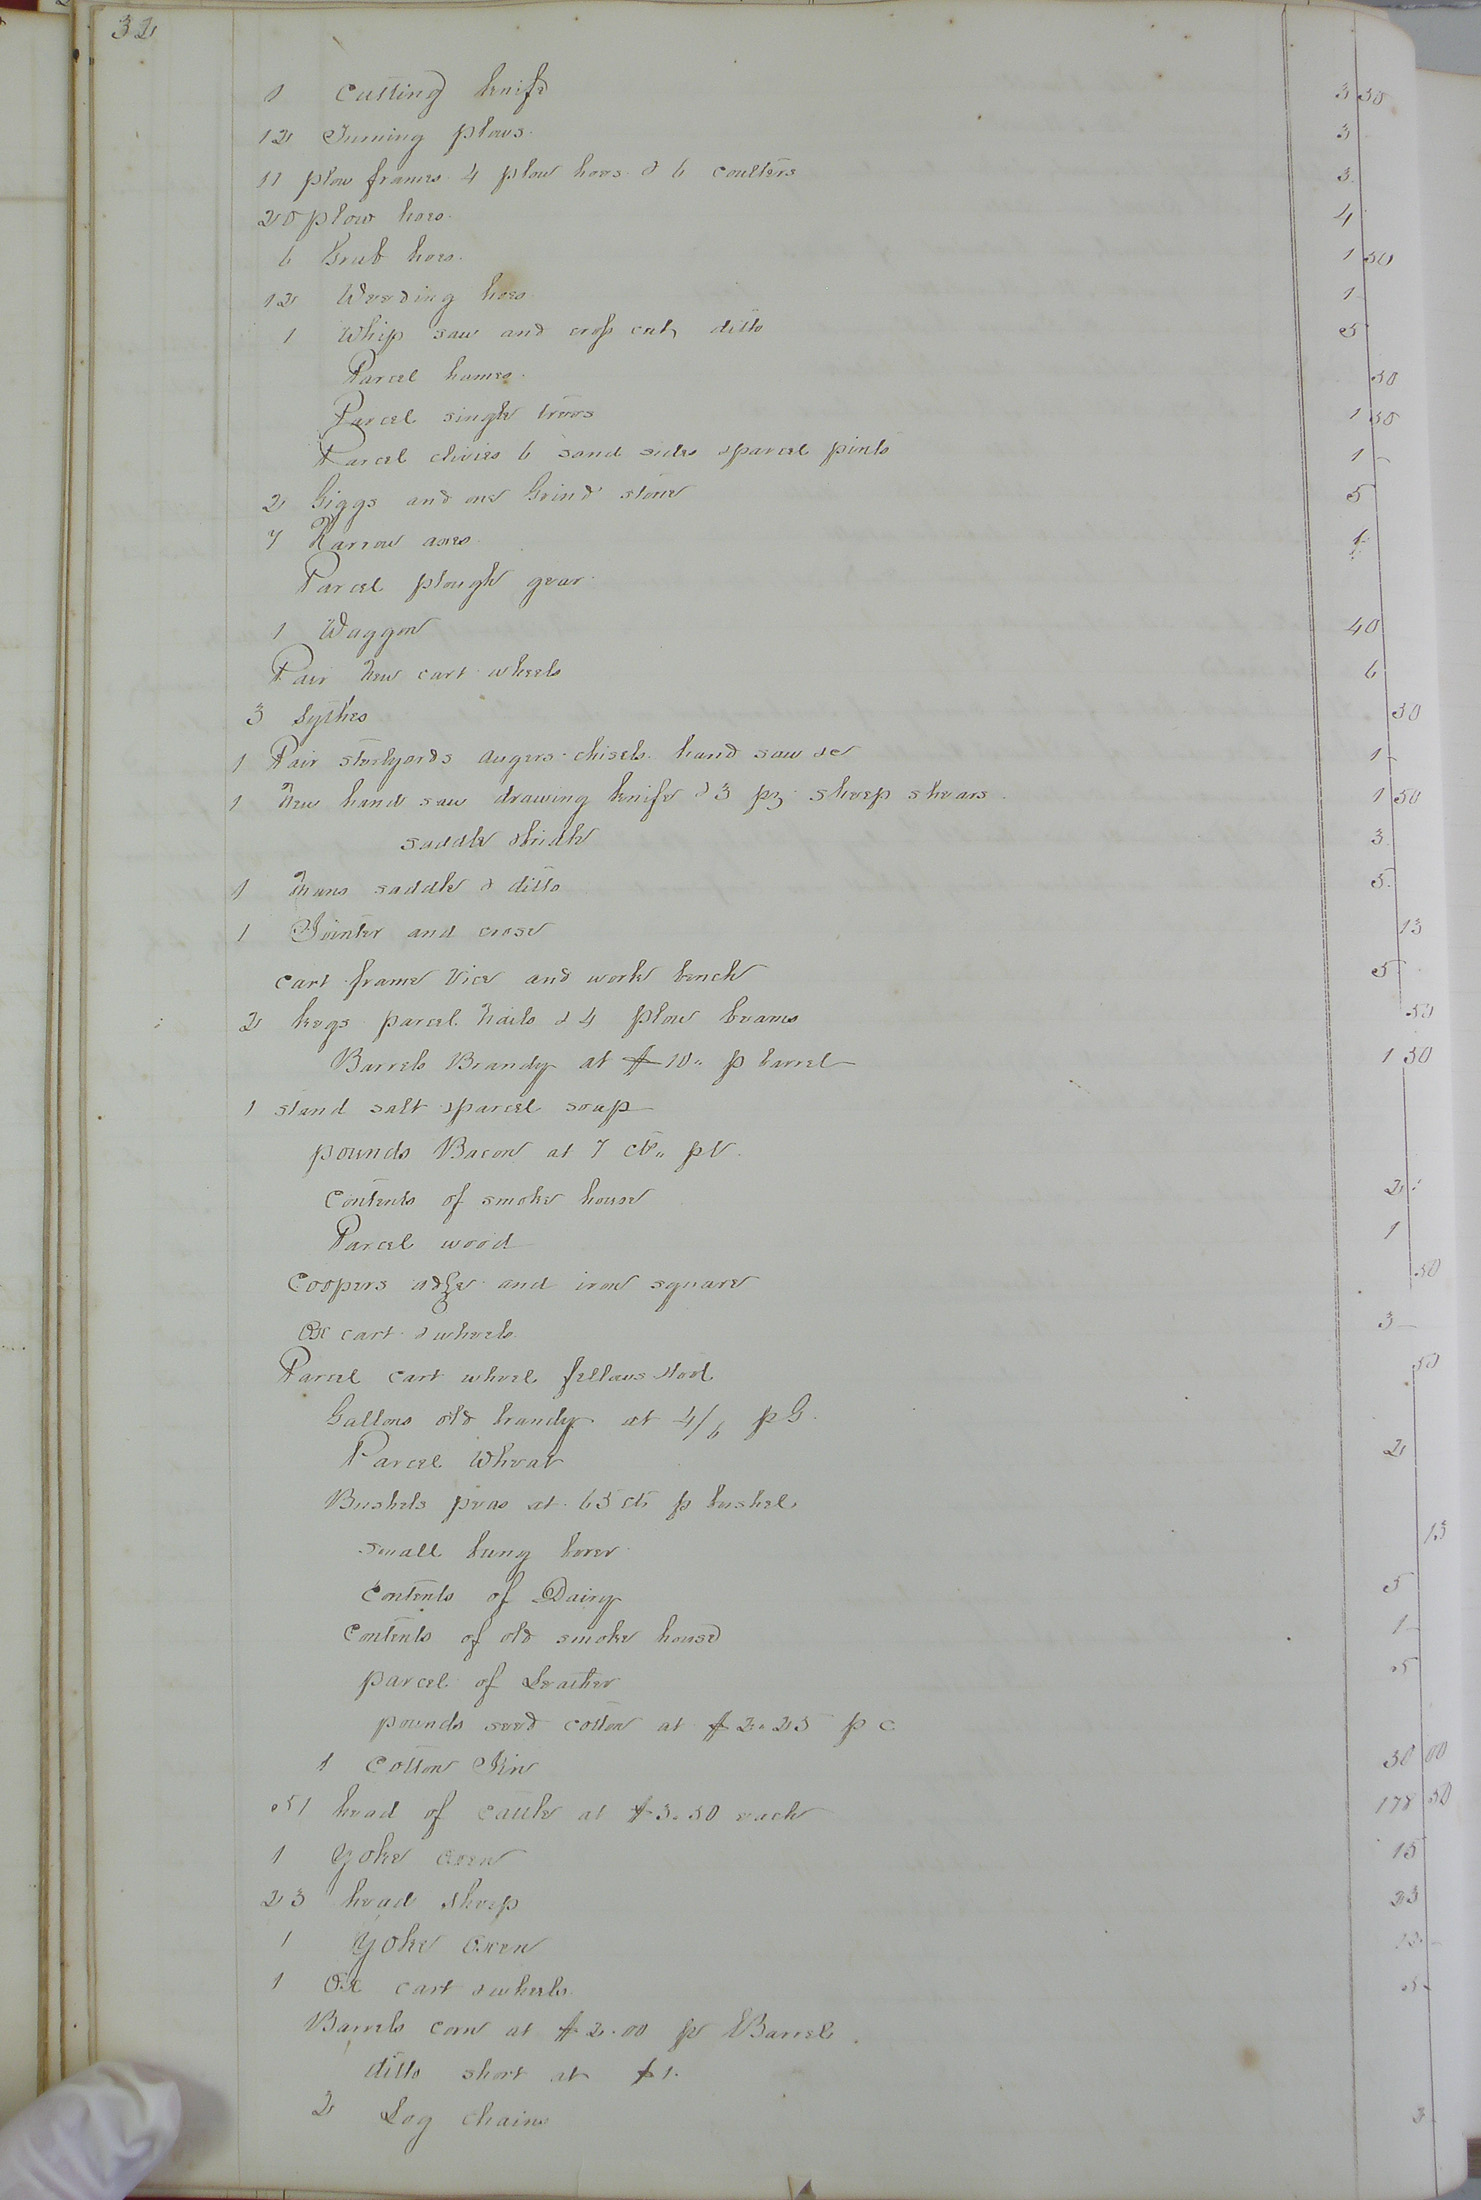 32
1 Cutting knife 3 50
12 Turning plows. 3
11 plow frames 4 plow hoes & 6 coulters 3.
20 plow hoes. 4
6 Grub hoes. 1 50
12 Weeding hoes 1
1 Whip saw and cross cut ditto 5
Parcel hames. 50
Parcel single trees 1 50
Parcel clivies 6 sand sides & parcel pinto 1
2 Giggs and one Grind stone 5
7 Narrow axes 1
Parcel plough gear
1 Waggon 40
Pair New cart wheels 6
3 Sythes 50
1 Pair steelyards Augers chisels hand saw &c 1
1 New hand saw drawing knife & 3 pr sheep shears 1 50
saddle & bridle 3.
1 Mans saddle & ditto 5.
1 Jointer and crose 13
cart frame Vice and work bench 5
2 kegs parcel Nails & 4 plow beams 50
Barrels Brandy at $10.. p barrel
1 stand salt & parcel soap 1 50
pounds Bacon at 7 cts.. p
Contents of smoke house 2
Parcel wood 1
Coopers adze and iron square 50
Ox cart & wheels 3
Parcel cart wheel fellows & tool 50
Gallons old brandy at 4/6 p G.
Parcel Wheat 2
Bushels peas at 65 cts p bushel
small bung borer 13
Contents of Dairy 5
Contents of old smoke house 1
parcel of Leather 5
pounds seed cotton at $2.25 p c
1 Cotton Gin 30 00
51 head of cattle at $3.50 each 178 50
1 Yoke oxen 15
23 head sheep 23
1 Yoke oxen 12
1 Ox cart & wheels 5
Barrels corn at $2.00 p Barrel.
ditto short at $1.
2 Log chains 3